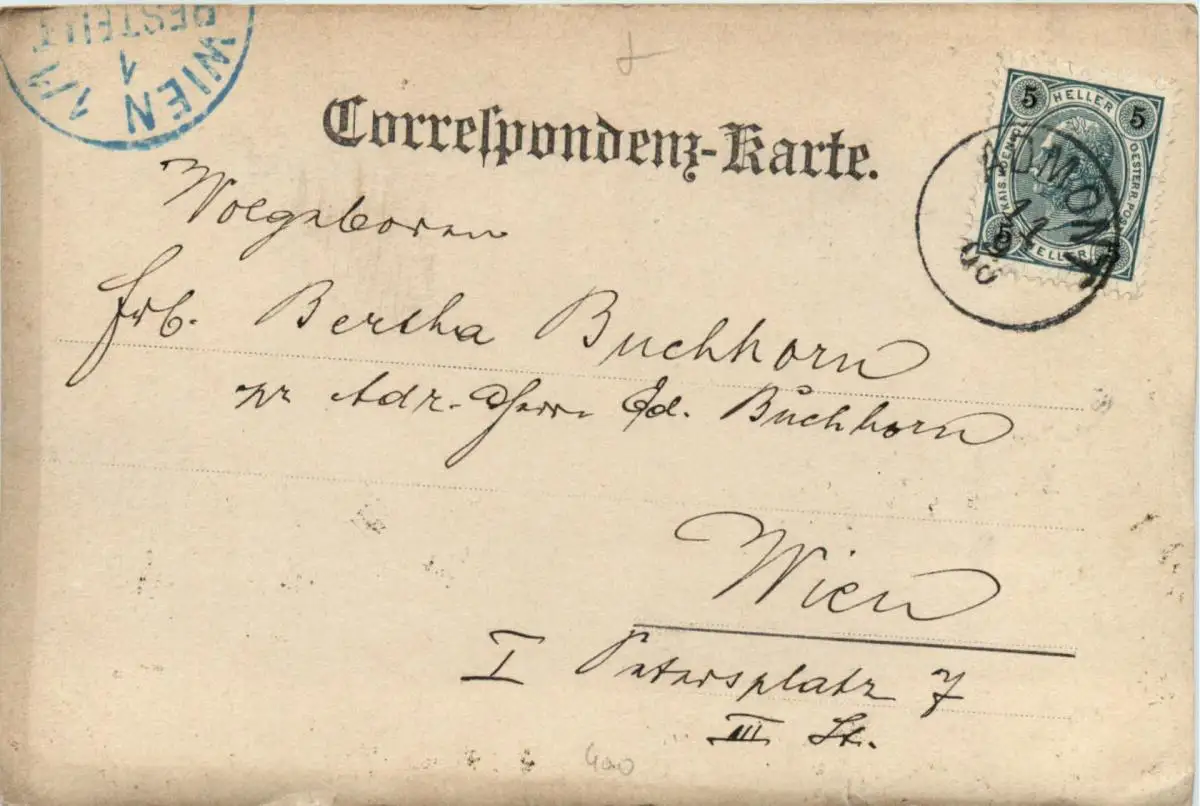 WIEN 1/1
BESTELLT
1
Correspondenz-Karte.
5 HELLER 5
KAIS. KOENIGL. OESTERR. POST
5 HELLER 5
ADMONT
11
9
00
Wolgeboren
Frl. Bertha Buchhorn
pr Adr. Herrn Ed. Buchhorn
Wien
I Petersplatz 7
III St.
400